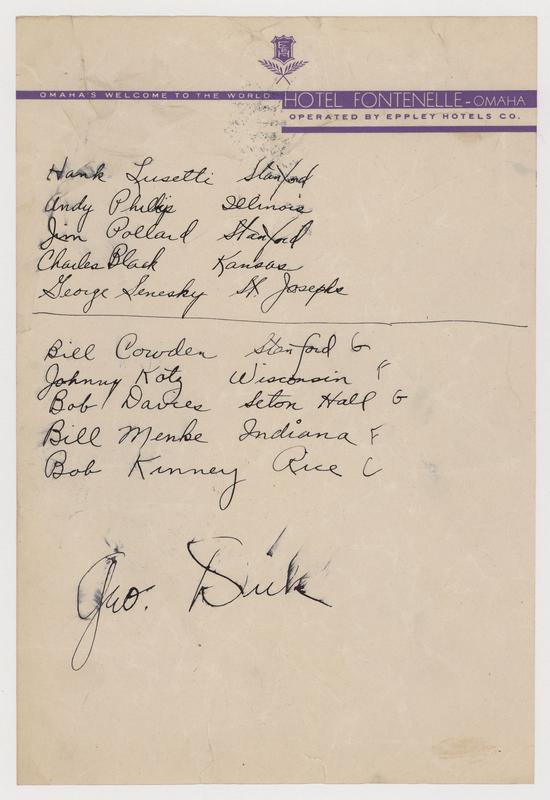 OMAHA'S WELCOME TO THE WORLD
HOTEL FONTENELLE-OMAHA
OPERATED BY EPPLEY HOTELS CO.
Hank Lusetti Stanford
Andy Phillip Illinois
Jim Pollard Stanford
Charles Black Kansas
George Senesky St. Josephs
Bill Cowden Stanford G
Johnny Kotz Wisconsin F
Bob Davies Seton Hall G
Bill Menke Indiana F
Bob Kinney Rice C
Geo.